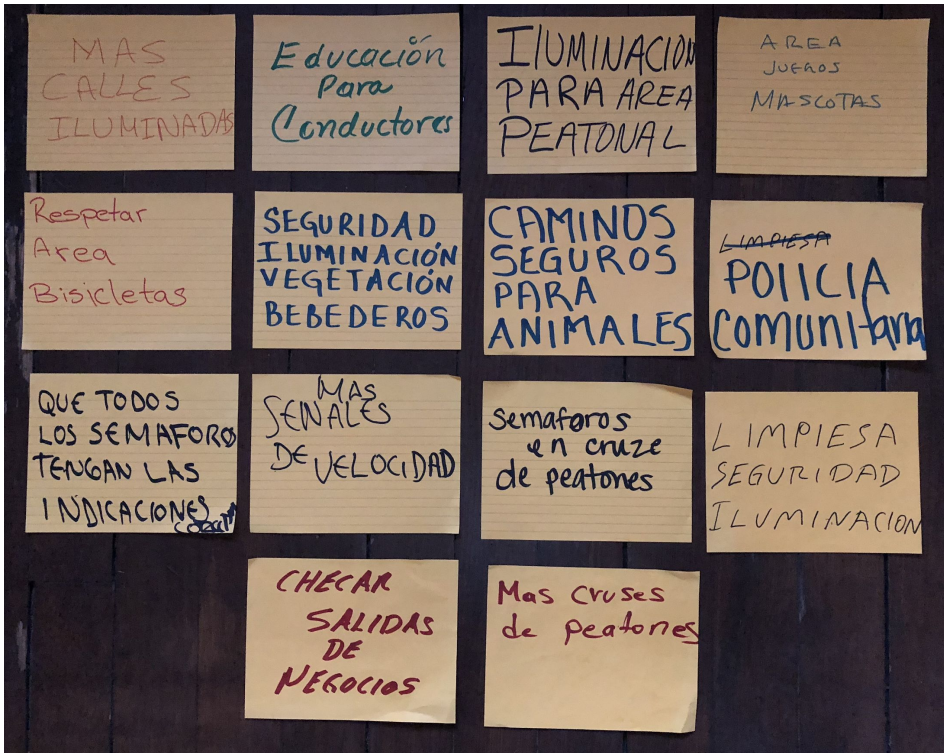 MAS
CALLES
ILUMINADAS
Educación
Para
Conductores
ILUMINACION
PARA AREA
PEATONAL
AREA
JUEGOS
MASCOTAS
Respetar
Area
Bisicletas
SEGURIDAD
ILUMINACIÓN
VEGETACIÓN
BEBEDEROS
CAMINOS
SEGUROS
PARA
ANIMALES
LIMPIESA
POLICIA
Comunitaria
QUE TODOS
LOS SEMAFOROS
TENGAN LAS
INDICACIONES
MAS
SENALES
DE VELOCIDAD
Semaforos
en cruze
de peatones
LIMPIESA
SEGURIDAD
ILUMINACION
CHECAR
SALIDAS
DE
NEGOCIOS
Mas cruses
de peatones